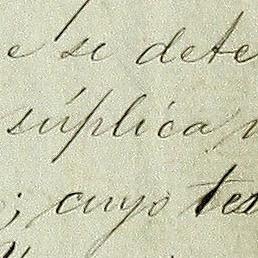 e se dete
súplica
; cuyo te